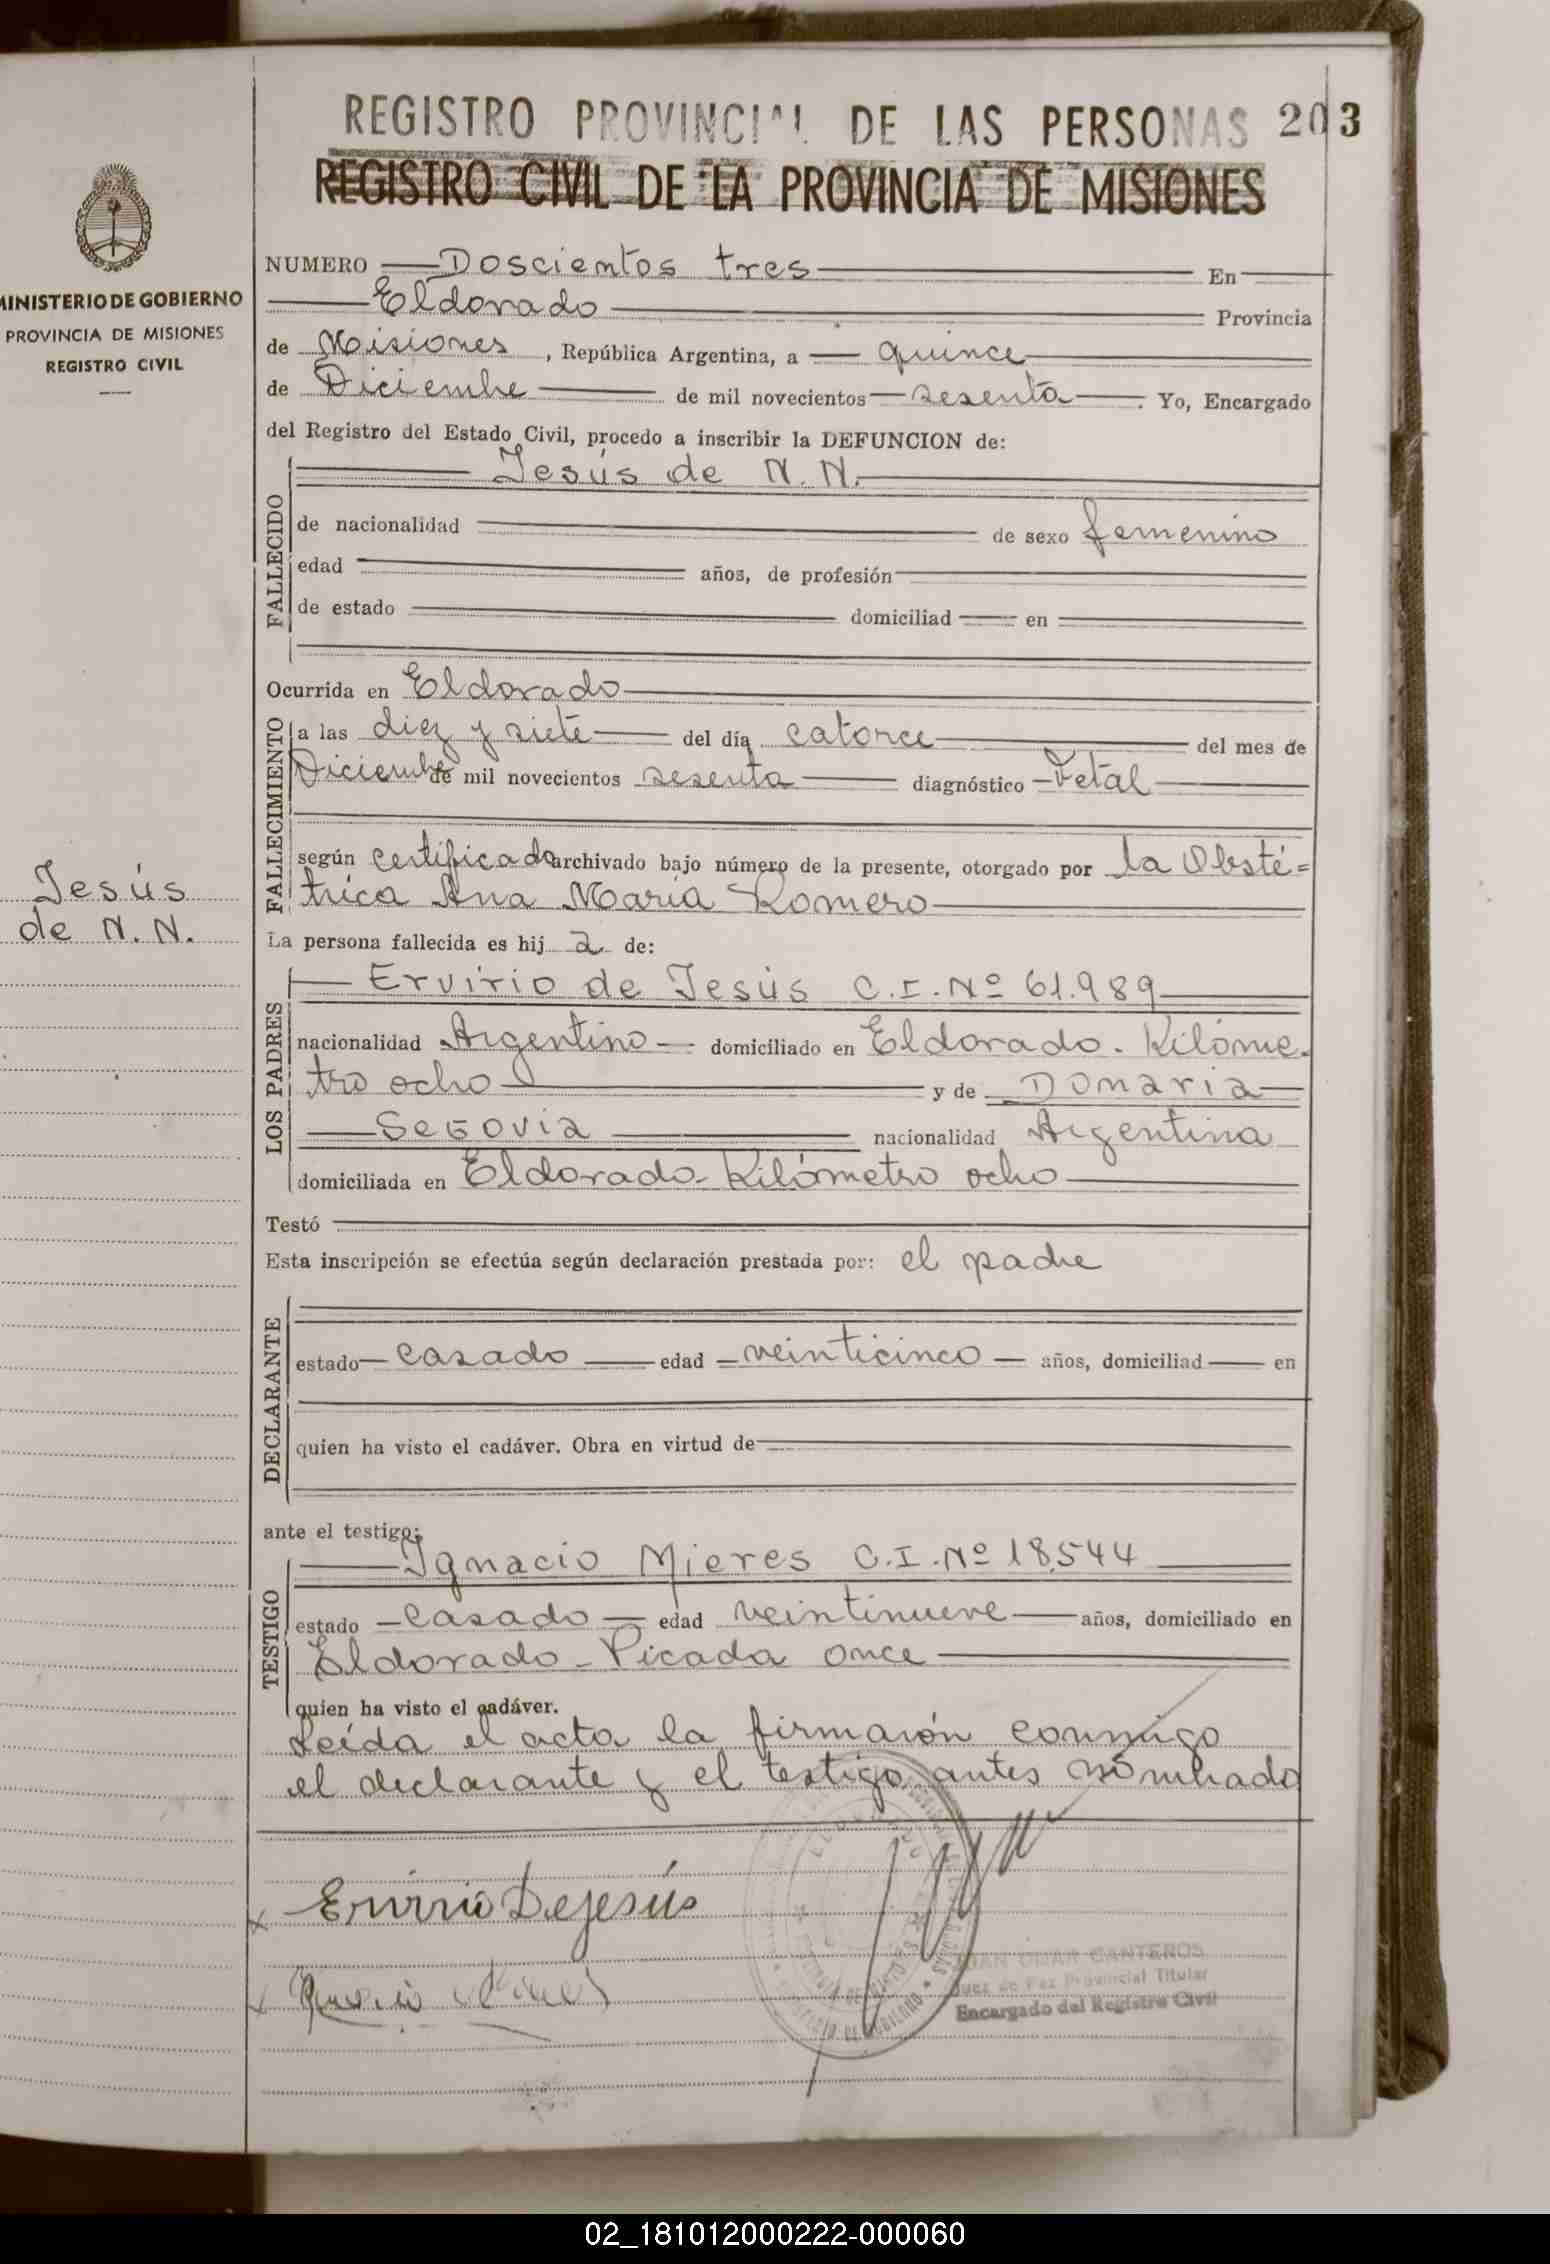 REGISTRO PROVINCIAL DE LAS PERSONAS 203
REGISTRO CIVIL DE LA PROVINCIA DE MISIONES
MINISTERIO DE GOBIERNO
PROVINCIA DE MISIONES
REGISTRO CIVIL
Jesús
de N. N.
NUMERO Doscientos tres En
Eldorado Provincia
de Misiones, República Argentina, a quince
de Diciembre de mil novecientos sesenta. Yo, Encargado
del Registro del Estado Civil, procedo a inscribir la DEFUNCION de:
Jesús de N. N.
FALLECIDO
de nacionalidad de sexo femenino
edad años, de profesión
de estado domiciliad en
Ocurrida en Eldorado
FALLECIMIENTO
a las diez y siete del día catorce del mes de
Diciembre de mil novecientos sesenta diagnóstico Fetal
según certificado archivado bajo número de la presente, otorgado por la Obsté=
trica Ana María Romero
La persona fallecida es hij a de:
LOS PADRES
Ervirio de Jesús C.I. Nº 61.989
nacionalidad Argentino domiciliado en Eldorado. Kilóme-
tro ocho y de Domaria
Segovia nacionalidad Argentina
domiciliada en Eldorado- Kilómetro ocho
Testó
Esta inscripción se efectúa según declaración prestada por: el padre
DECLARANTE
estado casado edad veinticinco años, domiciliad en
quien ha visto el cadáver. Obra en virtud de
ante el testigo:
TESTIGO
Ignacio Mieres C.I. Nº 18.544
estado casado edad veintinueve años, domiciliado en
Eldorado - Picada once
quien ha visto el cadáver.
Leída el acta la firmarón conmigo
el declarante y el testigo antes nombrado
x Ervirio Dejesús
x
JUAN OMAR CANTEROS
Juez de Paz Provincial Titular
Encargado del Registro Civil
02_181012000222-000060